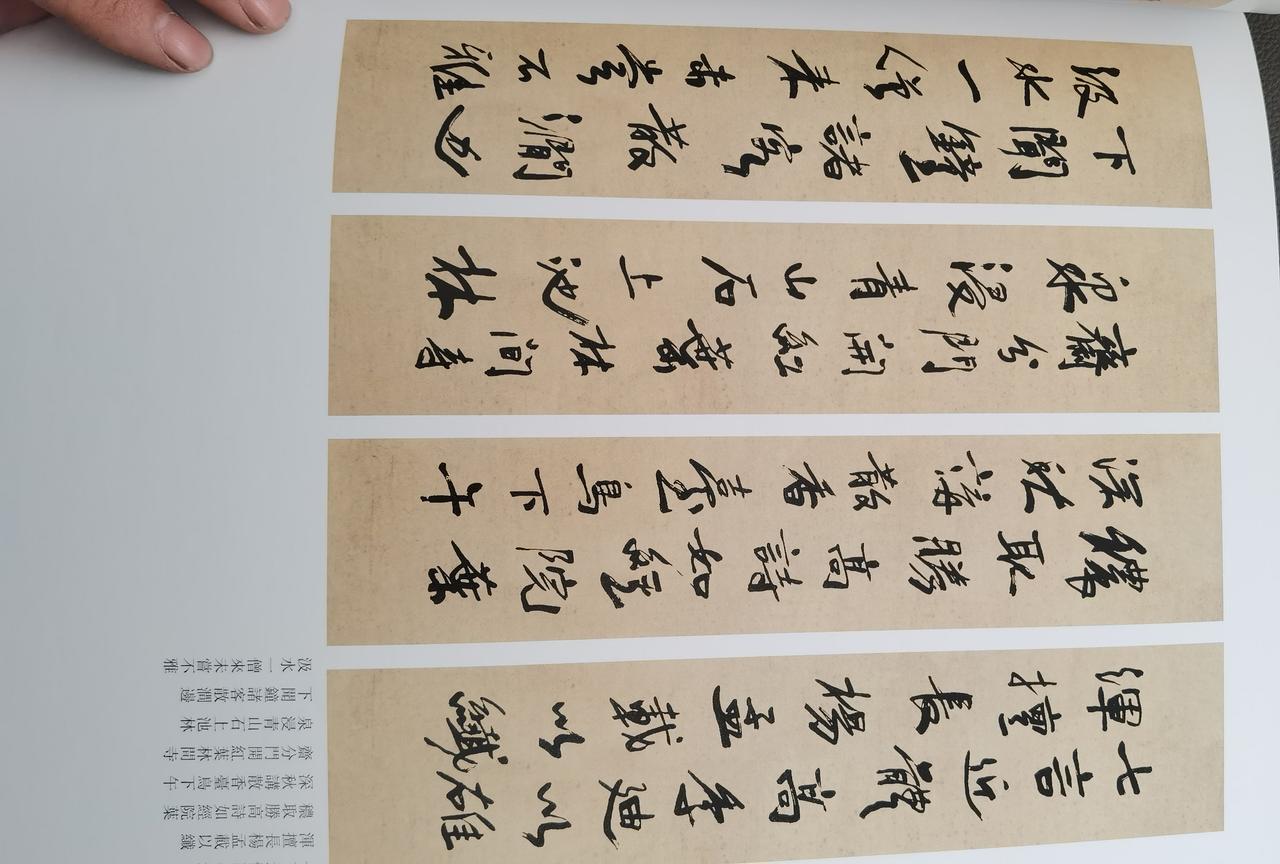 七言近體高季迪以古雄
渾擅長楊孟載以纖
穠取勝高詩如經院葉
深秋講散香臺鳥下午
齋分門開紅葉林間寺
泉浸青山石上池林
下聞鐘諸客散澗邊
汲水一僧來未嘗不雅
渾擅長楊孟載以纖
穠取勝高詩如經院葉
深秋講散香臺鳥下午
齋分門開紅葉林間寺
泉浸青山石上池林
下聞鐘諸客散澗邊
汲水一僧來未嘗不雅